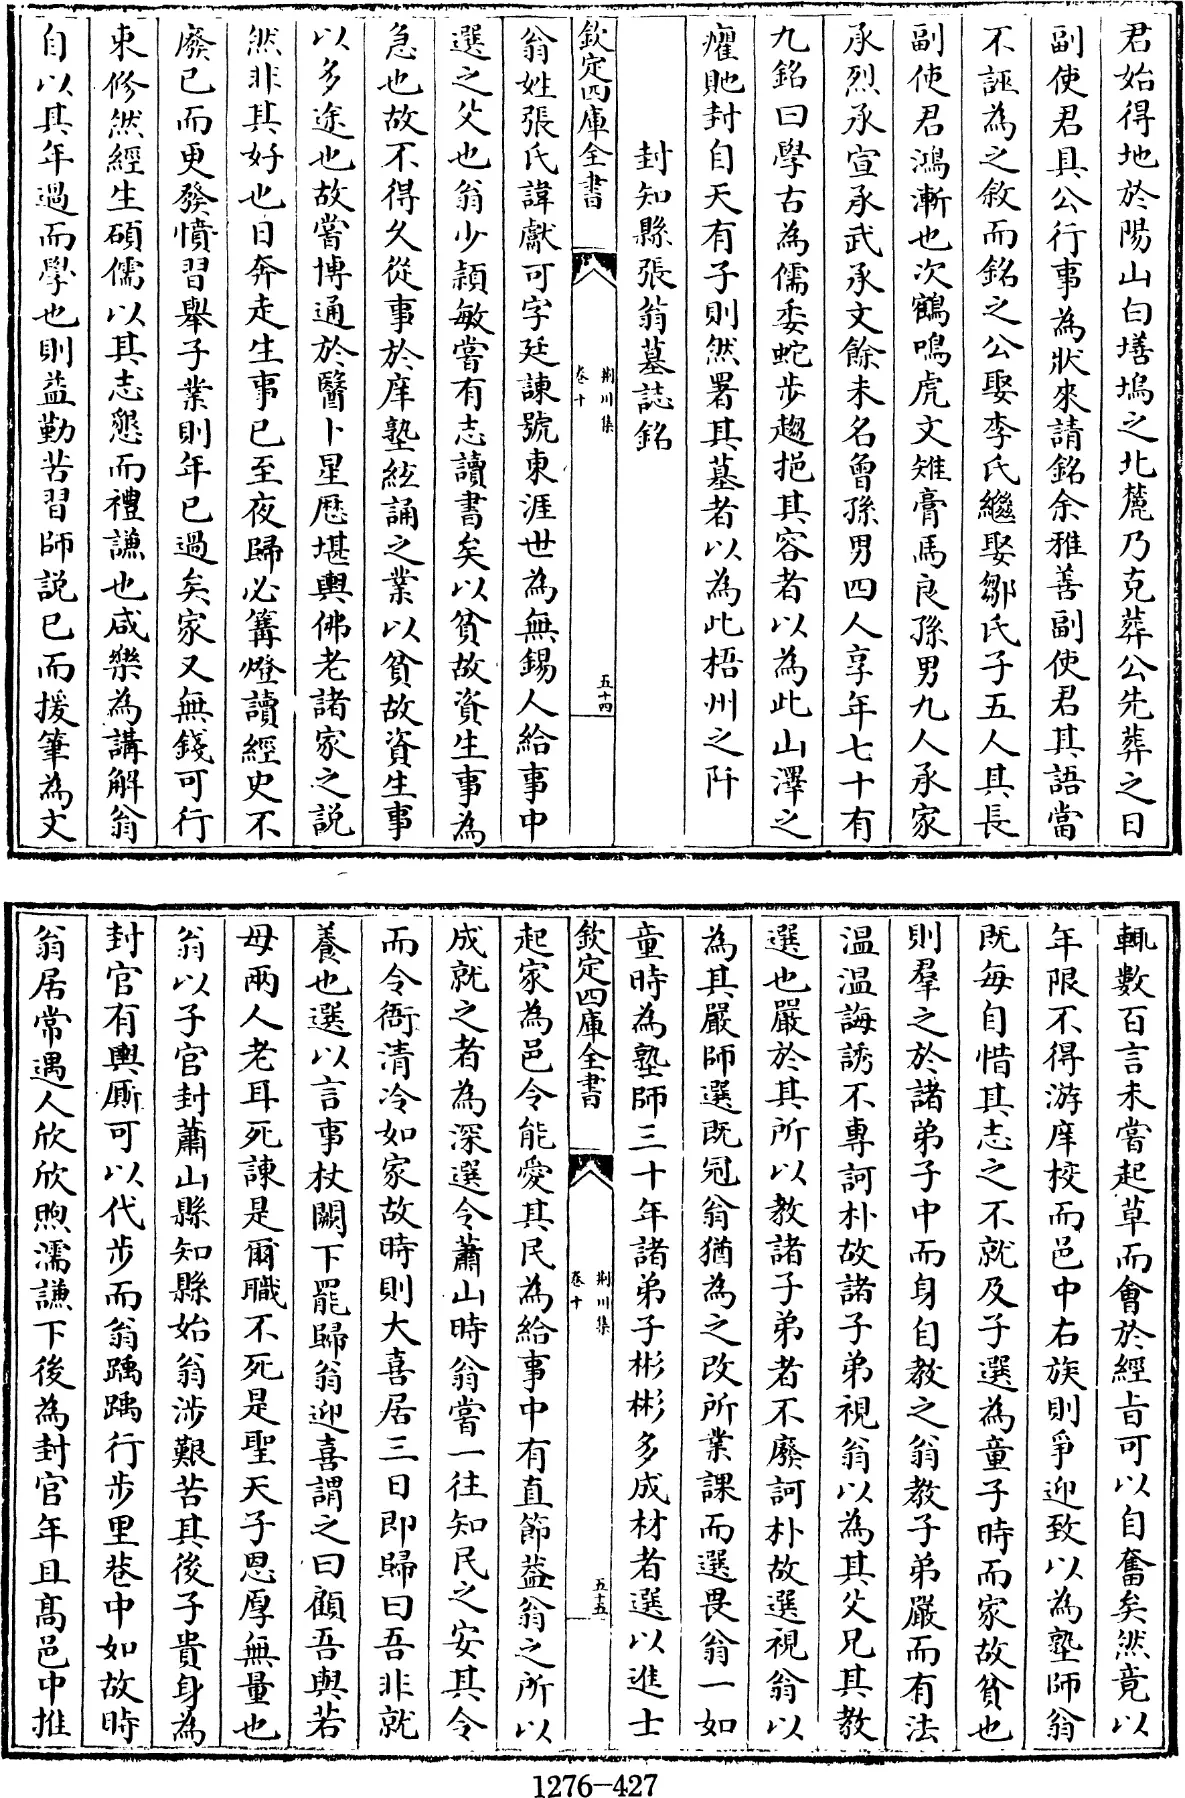 君始得地於陽山白墡塢之北麓乃克葬公先葬之日
副使君具公行事為狀來請銘余雅善副使君其語當
不誣為之敘而銘之公娶李氏繼娶鄒氏子五人其長
副使君鴻漸也次鶴鳴虎文雉膏馬良孫男九人承家
承烈承宣承武承文餘未名曾孫男四人享年七十有
九銘曰學古為儒委蛇步趨挹其容者以為此山澤之
癯貤封自天有子則然署其墓者以為此梧州之阡
封知縣張翁墓誌銘
欽定四庫全書
荆川集
卷十
五十四
翁姓張氏諱獻可字廷諫號東涯世為無錫人給事中
選之父也翁少頴敏嘗有志讀書矣以貧故資生事為
急也故不得久從事於庠塾絃誦之業以貧故資生事
以多途也故嘗博通於醫卜星歴堪輿佛老諸家之説
然非其好也日奔走生事已至夜歸必篝燈讀經史不
廢已而更發憤習舉子業則年已過矣家又無錢可行
束修然經生碩儒以其志懇而禮謙也咸樂為講解翁
自以其年過而學也則益勤苦習師説已而援筆為文
輒數百言未嘗起草而會於經旨可以自奮矣然竟以
年限不得游庠校而邑中右族則爭迎致以為塾師翁
既每自惜其志之不就及子選為童子時而家故貧也
則羣之於諸弟子中而身自教之翁教子弟嚴而有法
温温誨誘不專訶朴故諸子弟視翁以為其父兄其教
選也嚴於其所以教諸子弟者不廢訶朴故選視翁以
為其嚴師選既冠翁猶為之改所業課而選畏翁一如
童時為塾師三十年諸弟子彬彬多成材者選以進士
欽定四庫全書
荆川集
卷十
五十五
起家為邑令能愛其民為給事中有直節葢翁之所以
成就之者為深選令蕭山時翁嘗一往知民之安其令
而令衙清冷如家故時則大喜居三日即歸曰吾非就
養也選以言事杖闕下罷歸翁迎喜謂之曰顧吾與若
母兩人老耳死諫是爾職不死是聖天子恩厚無量也
翁以子官封蕭山縣知縣始翁涉艱苦其後子貴身為
封官有輿廝可以代步而翁踽踽行步里巷中如故時
翁居常遇人欣欣煦濡謙下後為封官年且高邑中推
1276-427